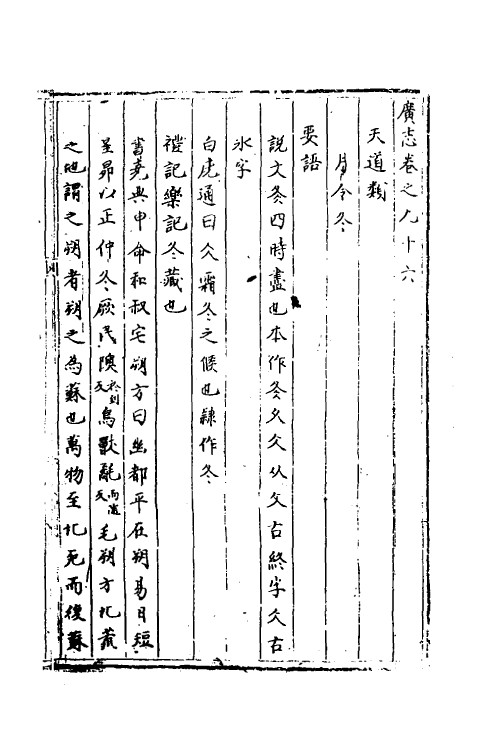 廣志卷之九十六
天道類
月令冬
要語
說文冬四時盡也本作冬夂仌从夂古終字仌古
氷字
白虎通曰仌霜冬之候也隸作冬
禮記樂記冬藏也
書堯典申命和叔宅朔方曰幽都平在朔易日短
星昴以正仲冬厥民隩於到反鳥獸氄而隴反毛朔方北荒
之地謂之朔者朔之為蘇也萬物至北死而後蘇